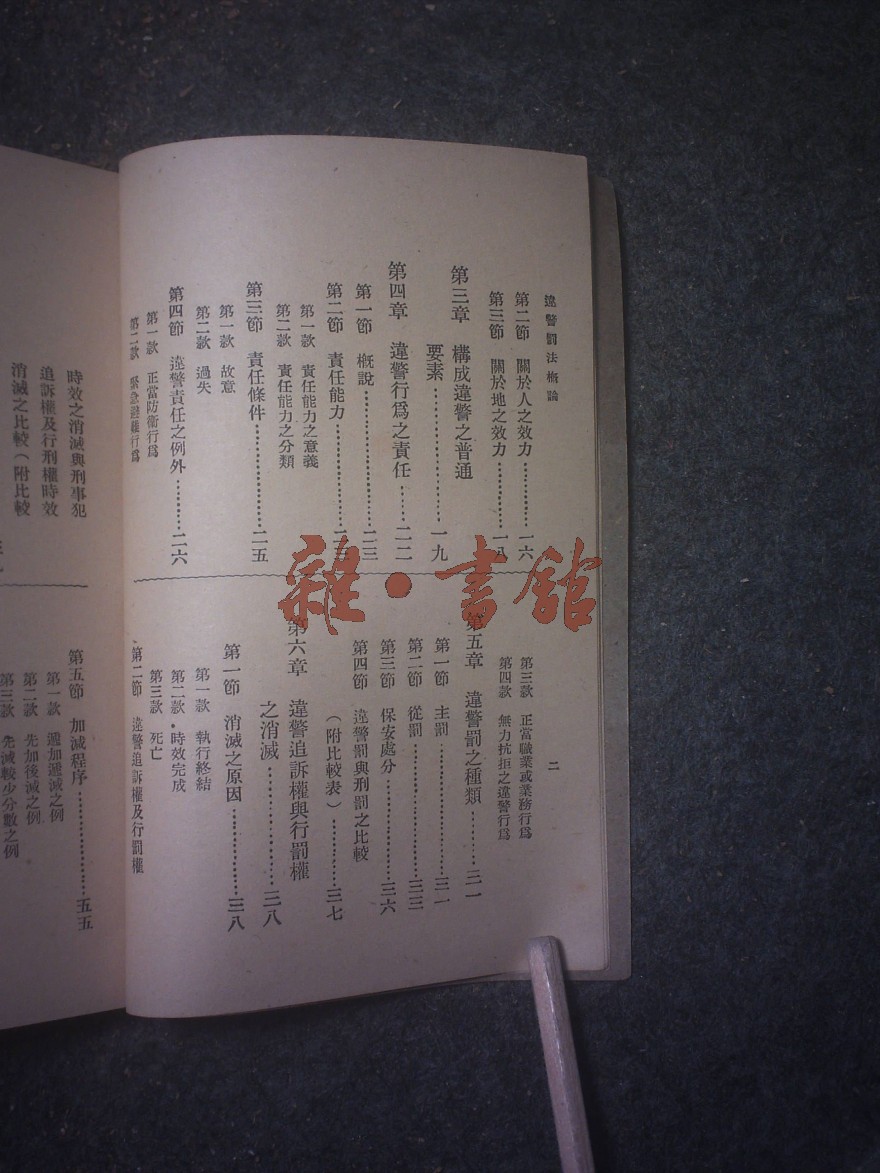 違警罰法槪論
第二節 關於人之效力…………一六
第三節 關於地之效力…………一八
第三章 構成違警之普通
要素…………一九
第四章 違警行爲之責任……二二
第一節 槪說…………二三
第二節 責任能力…………
第一款 責任能力之意義
第二款 責任能力之分類
第三節 責任條件…………二五
第一款 故意
第二款 過失
第四節 違警責任之例外…………二六
第一款 正當防衛行爲
第二款 緊急避難行爲
二
第三款 正當職業或業務行爲
第四款 無力抗拒之違警行爲
第五章 違警罰之種類…………三一
第一節 主罰…………三一
第二節 從罰…………三三
第三節 保安處分…………三六
第四節 違警罰與刑罰之比較
（附比較表）…………三七
第六章 違警追訴權與行罰權
之消滅…………三八
第一節 消滅之原因…………三八
第一款 執行終結
第二款 時效完成
第三款 死亡
第二節 違警追訴權及行罰權
時效之消滅與刑事犯
追訴權及行刑權時效
消滅之比較（附比較
第五節 加減程序…………五五
第一款 遞加遞減之例
第二款 先加後減之例
第三款 先減較少分數之例
雜·書館